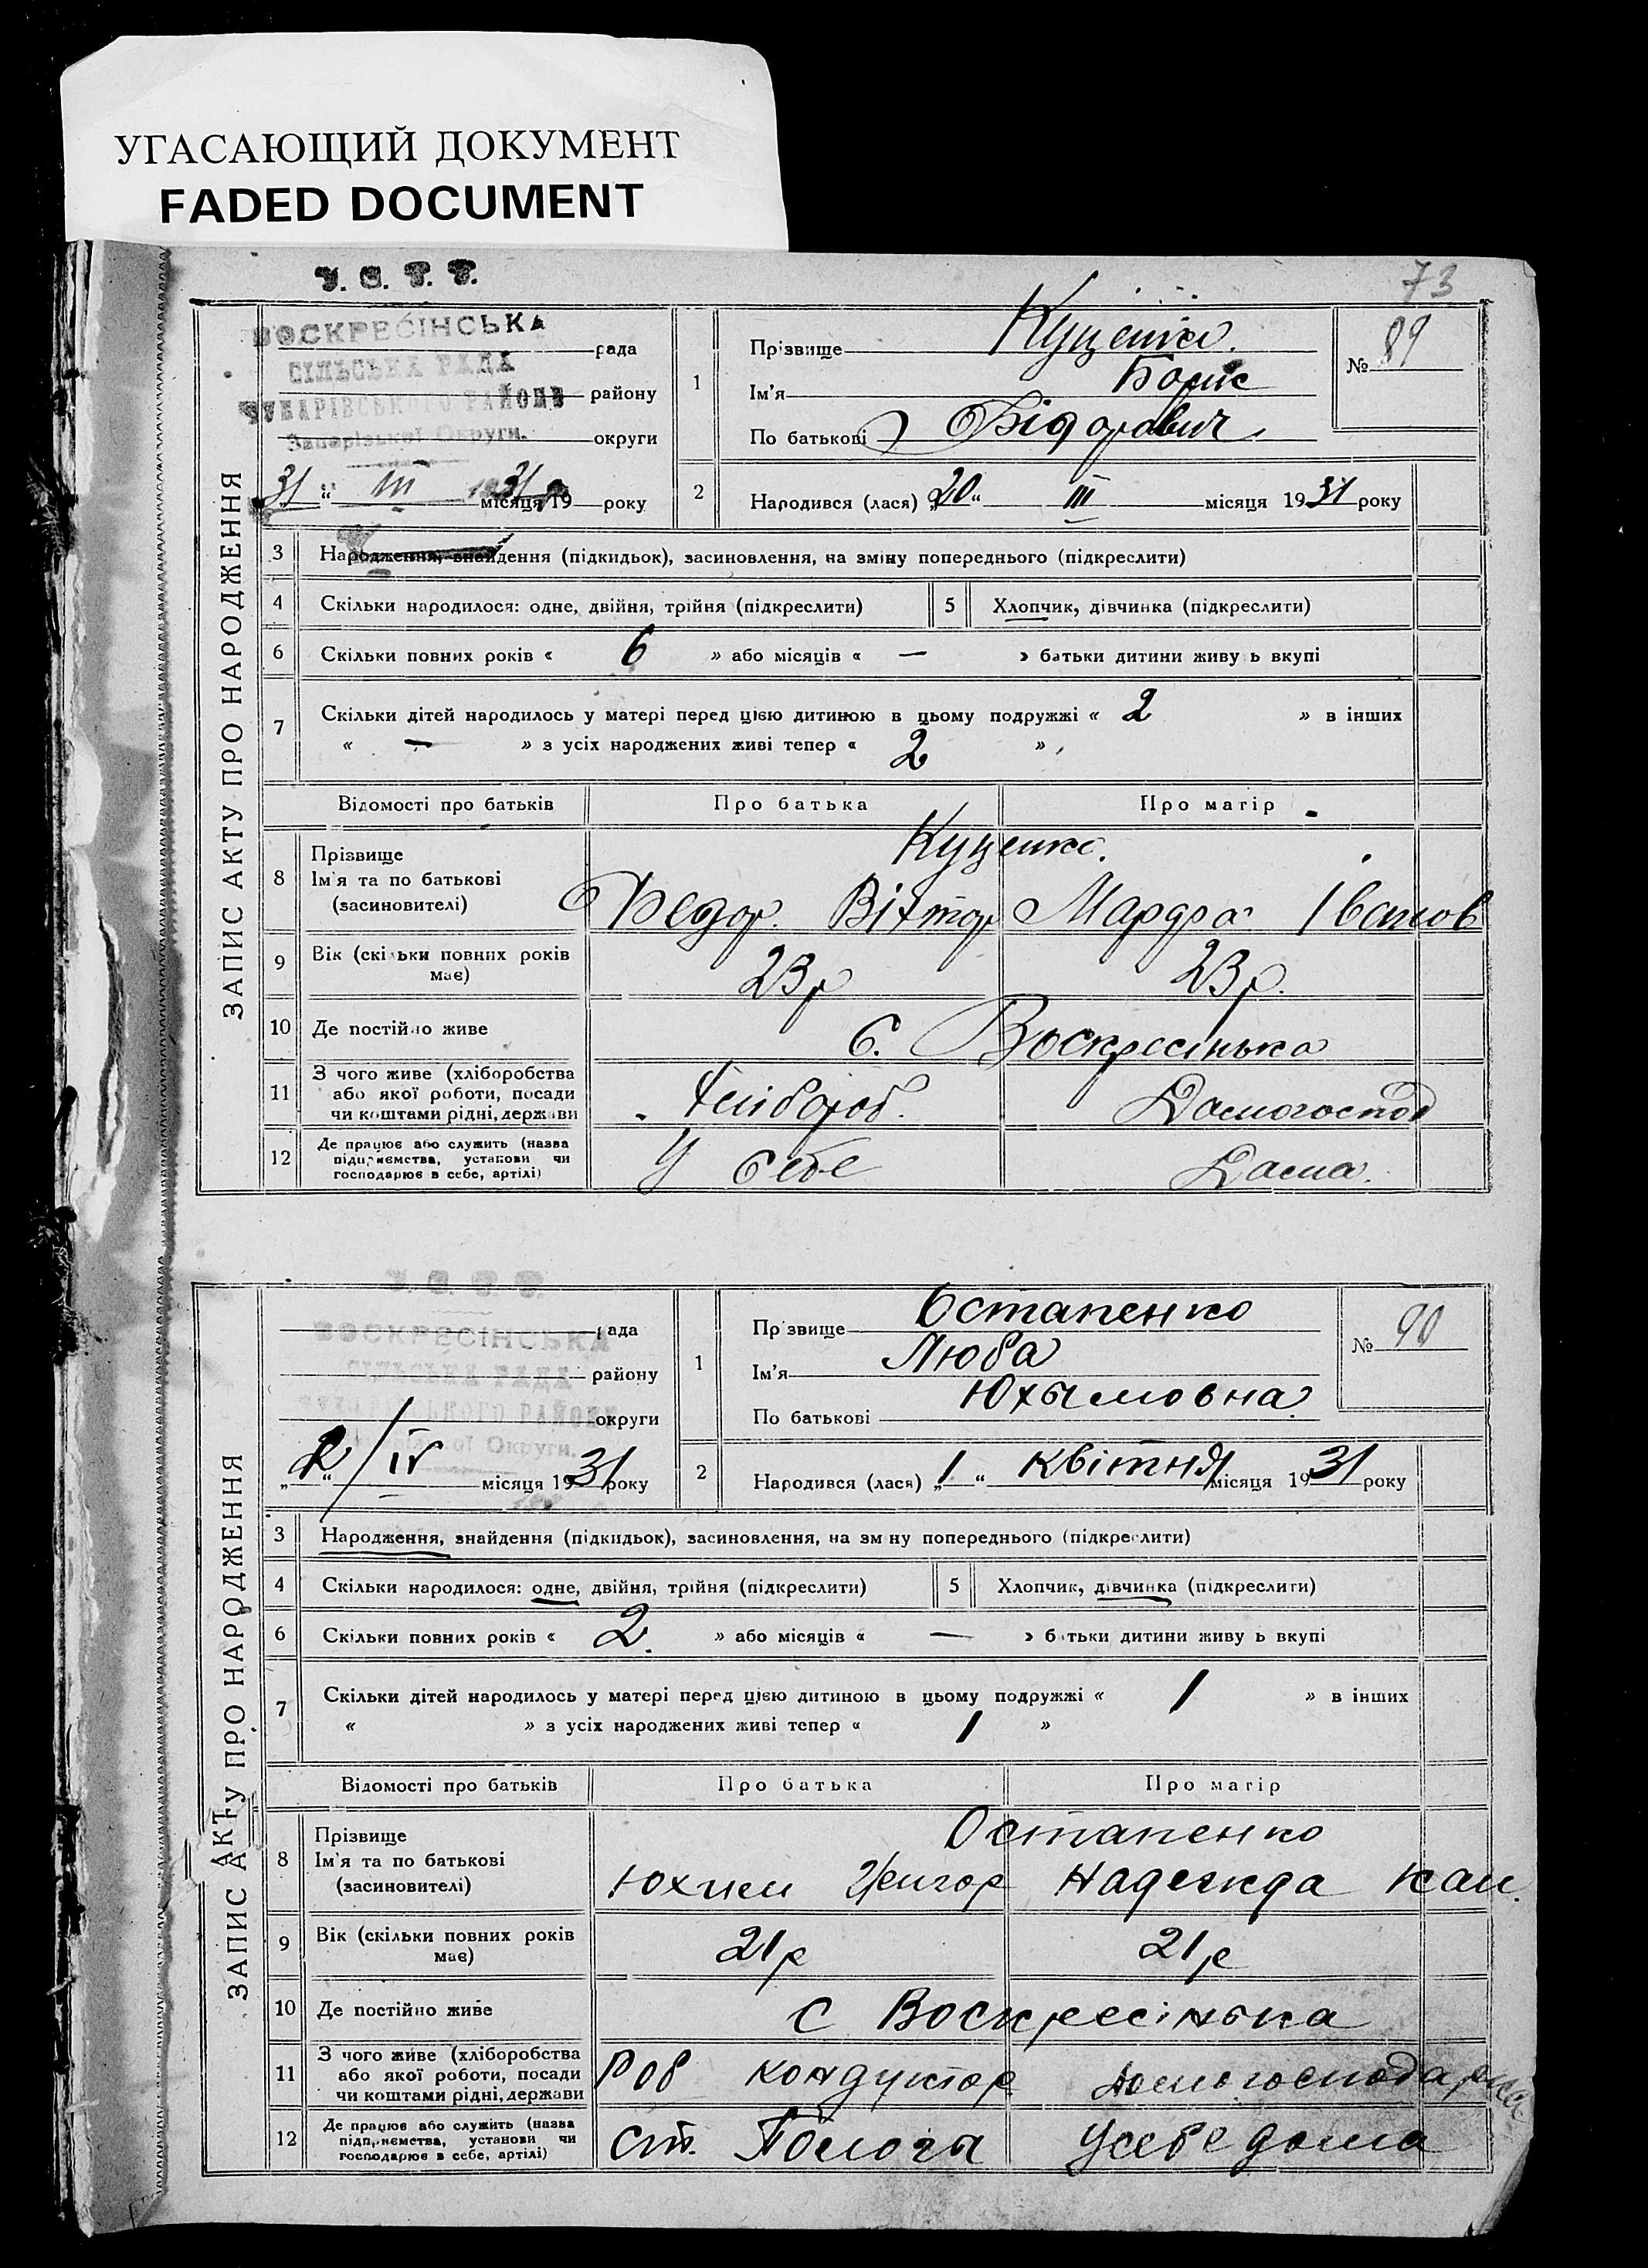 УГАСАЮЩИЙ ДОКУМЕНТ
FADED DOCUMENT
У. С. Р. Р.
73
ЗАПИС АКТУ ПРО НАРОДЖЕННЯ
ВОСКРЕСІНСЬКА
рада
СІЛЬСЬКА РАДА
району
ЧУБАРІВСЬКОГО РАЙОНУ
Запорізької Округи.
округи
31 " III місяця 1931 року
1
Прізвище Куценко.
Ім'я Борис
По батькові Фідорович
№ 89
2
Народився (лася) „20" III місяця 1931 року
3 Народження, знайдення (підкидьок), засиновлення, на зміну попереднього (підкреслити)
4 Скільки народилося: одне, двійня, трійня (підкреслити)
5 Хлопчик, дівчинка (підкреслити)
6 Скільки повних років « 6 » або місяців « — » батьки дитини живу ь вкупі
7 Скільки дітей народилось у матері перед цією дитиною в цьому подружжі « 2 » в інших
« — » з усіх народжених живі тепер « 2 »
Відомості про батьків Про батька Про матір
8 Прізвище
Ім'я та по батькові
(засиновителі)
Куценко.
Федор. Віктор Іванов
9 Вік (скі ьки повних років
має)
23 р 23 р.
10 Де постійно живе с. Воскресінька
11 З чого живе (хліборобства
або якої роботи, посади
чи коштами рідні, держави
Хлібороб. Домогоспод
12 Де працює або служить (назва
підприємства, установи чи
господарює в себе, артілі)
У себе Дома.
ЗАПИС АКТУ ПРО НАРОДЖЕННЯ
У. С. Р. Р.
ВОСКРЕСІНСЬКА
рада
СІЛЬСЬКА РАДА
району
РАЙОНУ
Округи.
округи
2/IV місяця 1931 року
1
Пр звище Остапенко
Ім'я Люба
По батькові Юхымовна
№ 90
2
Народився (лася) „1" квітня місяця 1931 року
3 Народження, знайдення (підкидьок), засиновлення, на зм ну попереднього (підкреслити)
4 Скільки народилося: одне, двійня, трійня (підкреслити)
5 Хлопчик, дівчинка (підкреслити)
6 Скільки повних років « 2. » або місяців « — » б тьки дитини живу ь вкупі
7 Скільки дітей народилось у матері перед цією дитиною в цьому подружжі « 1 » в інших
« » з усіх народжених живі тепер « 1 »
Відомості про батьків Про батька Про матір
8 Прізвище
Ім'я та по батькові
(засиновителі)
Остапенко
Юхим Григор Надежда
9 Вік (скільки повних років
має)
21 р 21 р
10 Де постійно живе с Воскресінька
11 З чого живе (хліборобства
або якої роботи, посади
чи коштами рідні, держави
Роб кондуктор домогосподарка
12 Де працює або служить (назва
підприємства, установи чи
господарює в себе, артілі)
ст. Пологы Усебе дома